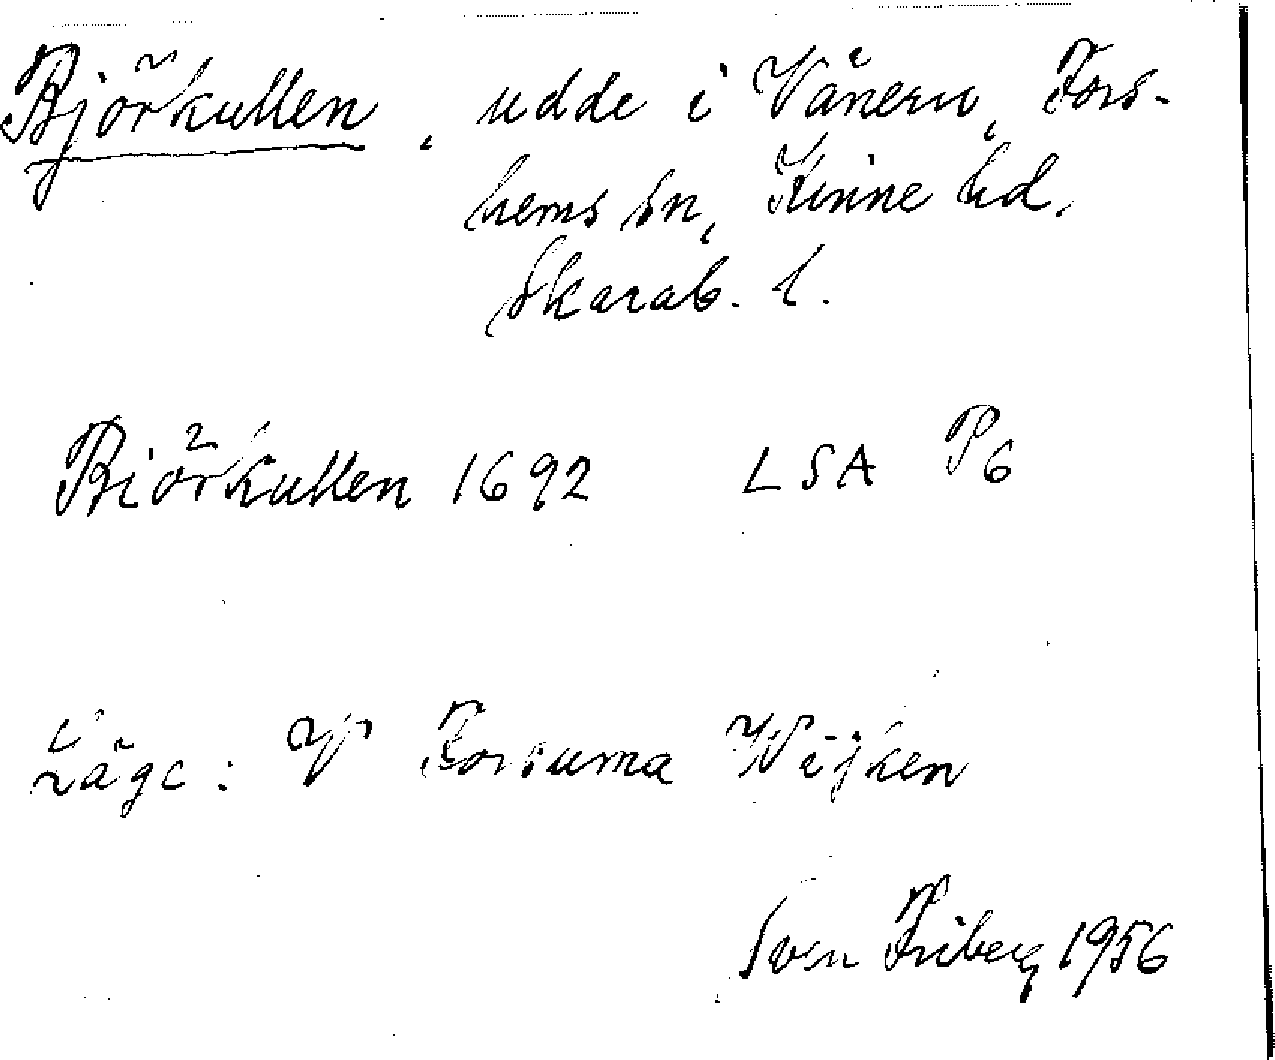 Björkullen, udde i Vänern, Fors-
hems sn, Kinne hd,
Skarab. l.
Biörkullen 1692 LSA P6
Läge: Wijken
Sven Friberg 1956